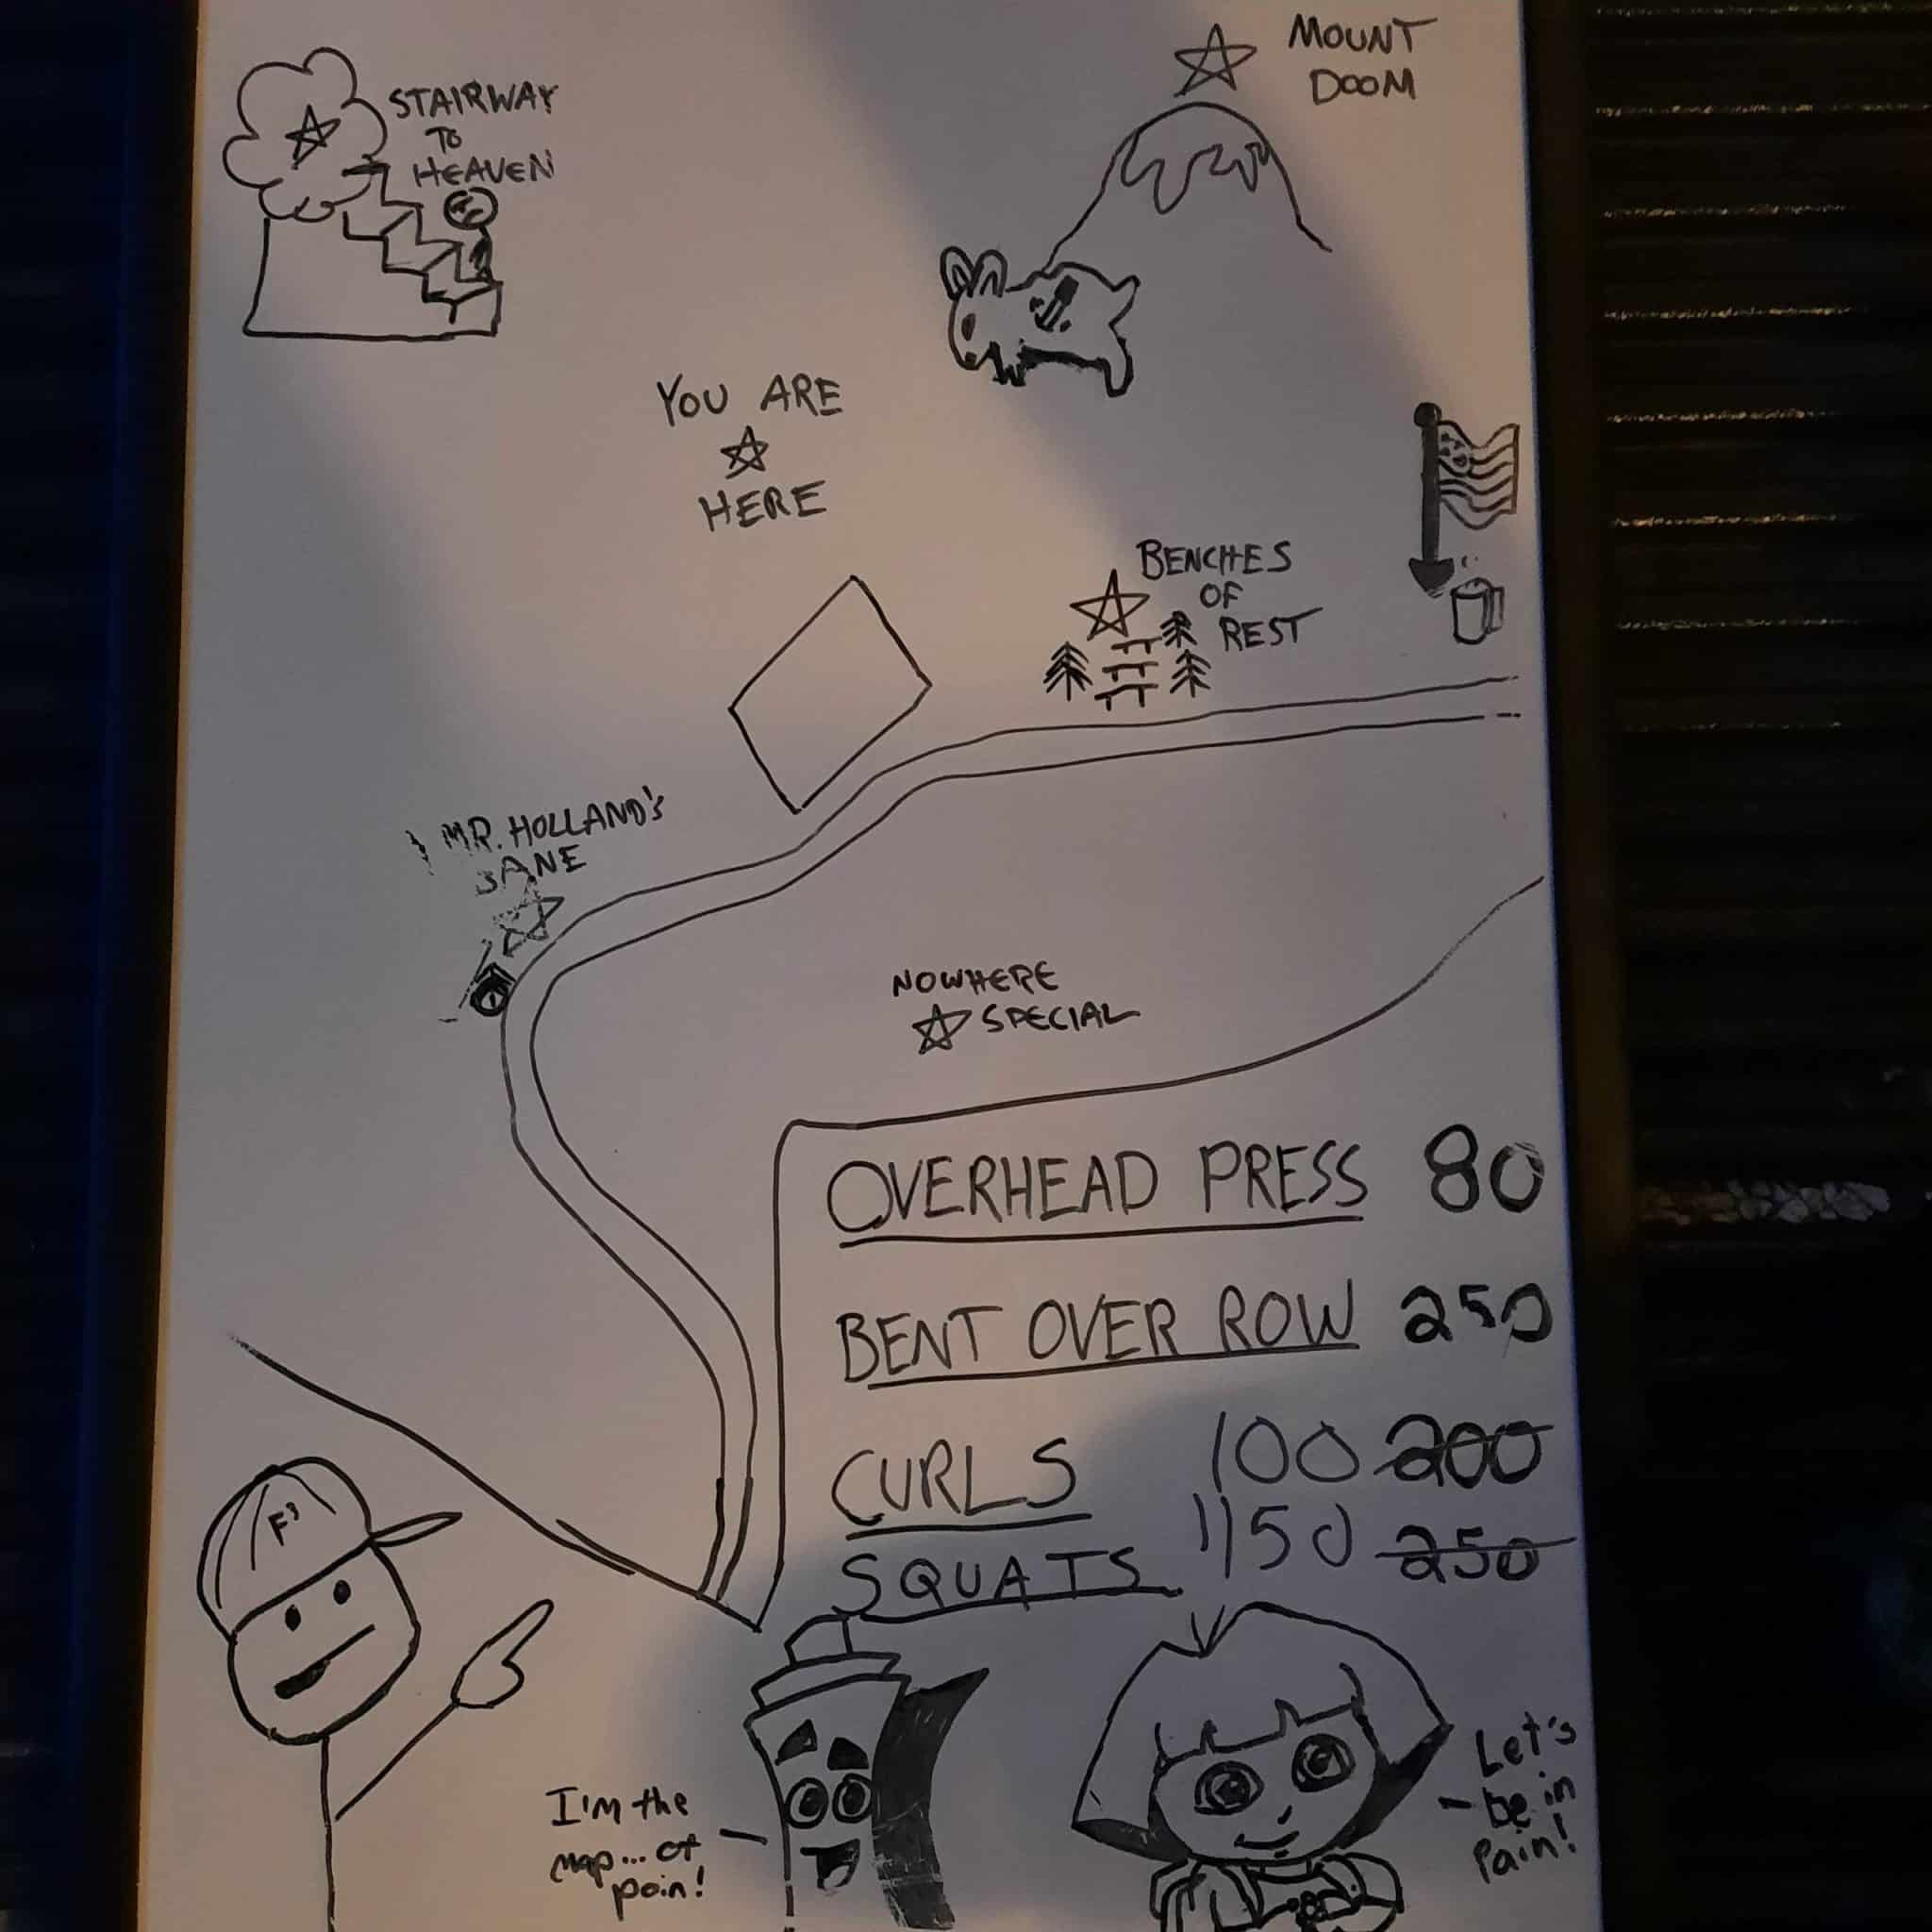 STAIRWAY
TO
HEAVEN
MOUNT
DOOM
YOU ARE
HERE
BENCHES
OF
REST
MR. HOLLAND'S
NOWHERE
SPECIAL
OVERHEAD PRESS 80
BENT OVER ROW 250
CURLS 100 200
SQUATS 1150 250
F3
I'm the
map... of
pain!
Let's
be in
Pain!